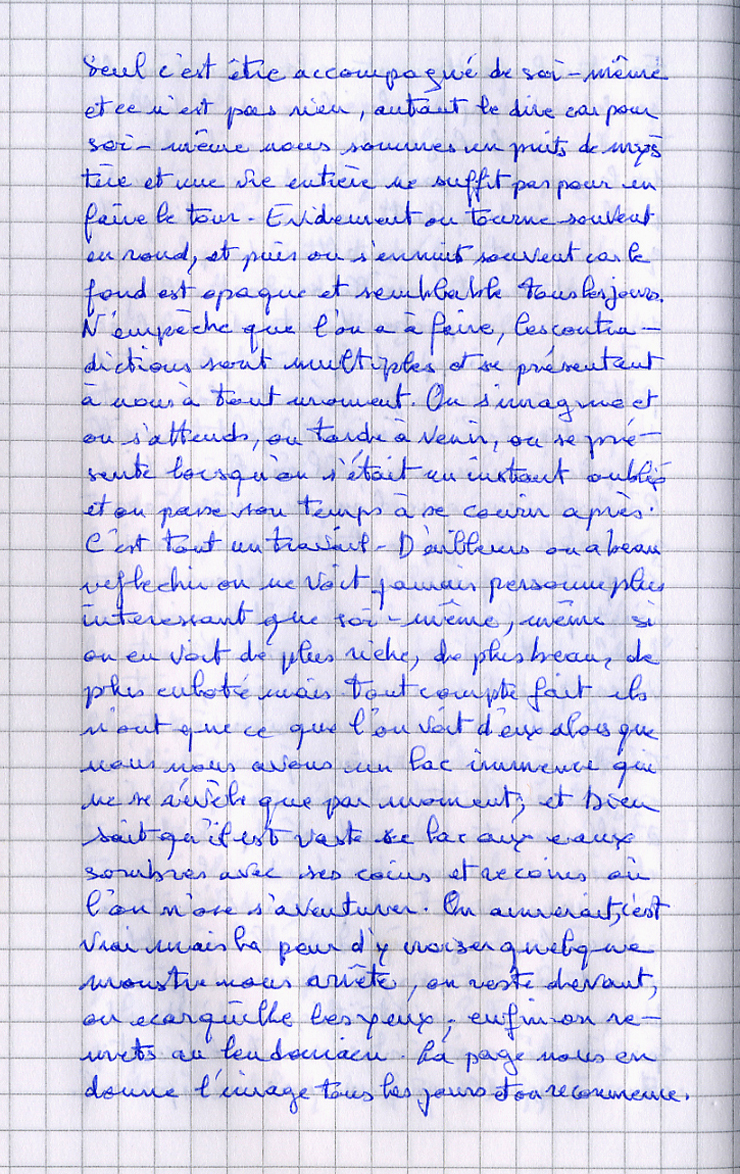 Seul c'est être accompagné de soi-même
et ce n'est pas rien, autant le dire car pour
soi-même nous sommes un puits de mys
tère et une vie entière ne suffit pas pour en
faire le tour. Evidement on tourne souvent
en rond, et puis on s'ennuit souvent car le
fond est opaque et semblable tous les jours.
N'empêche que l'on a à faire, les contra-
dictions sont multiples et se présentent
à nous à tout moment. On s'imagine et
on s'attends, on tarde à venir, on se pré-
sente lorsqu'on s'était un instant oublié
et on passe son temps à se courir après.
C'est tout un travail. D'ailleurs on a beau
reflechir on ne voit jamais personne plus
interessant que soi-même, même si
on en voit de plus riche, de plus beau, de
plus culoté mais tout compte fait ils
n'ont que ce que l'on voit d'eux alors que
nous nous avons un lac immence qui
ne se révèle que par moment, et Dieu
sait qu'il est vaste ce lac aux eaux
sombres avec ses coins et recoins où
l'on n'ose s'aventurer. On aimerait, c'est
vrai mais la peur d'y croiser quelque
monstre nous arrête, on reste devant,
on ecarquille les yeux, enfin on re-
mets au lendemain. La page nous en
donne l'image tous les jours et on recommence.